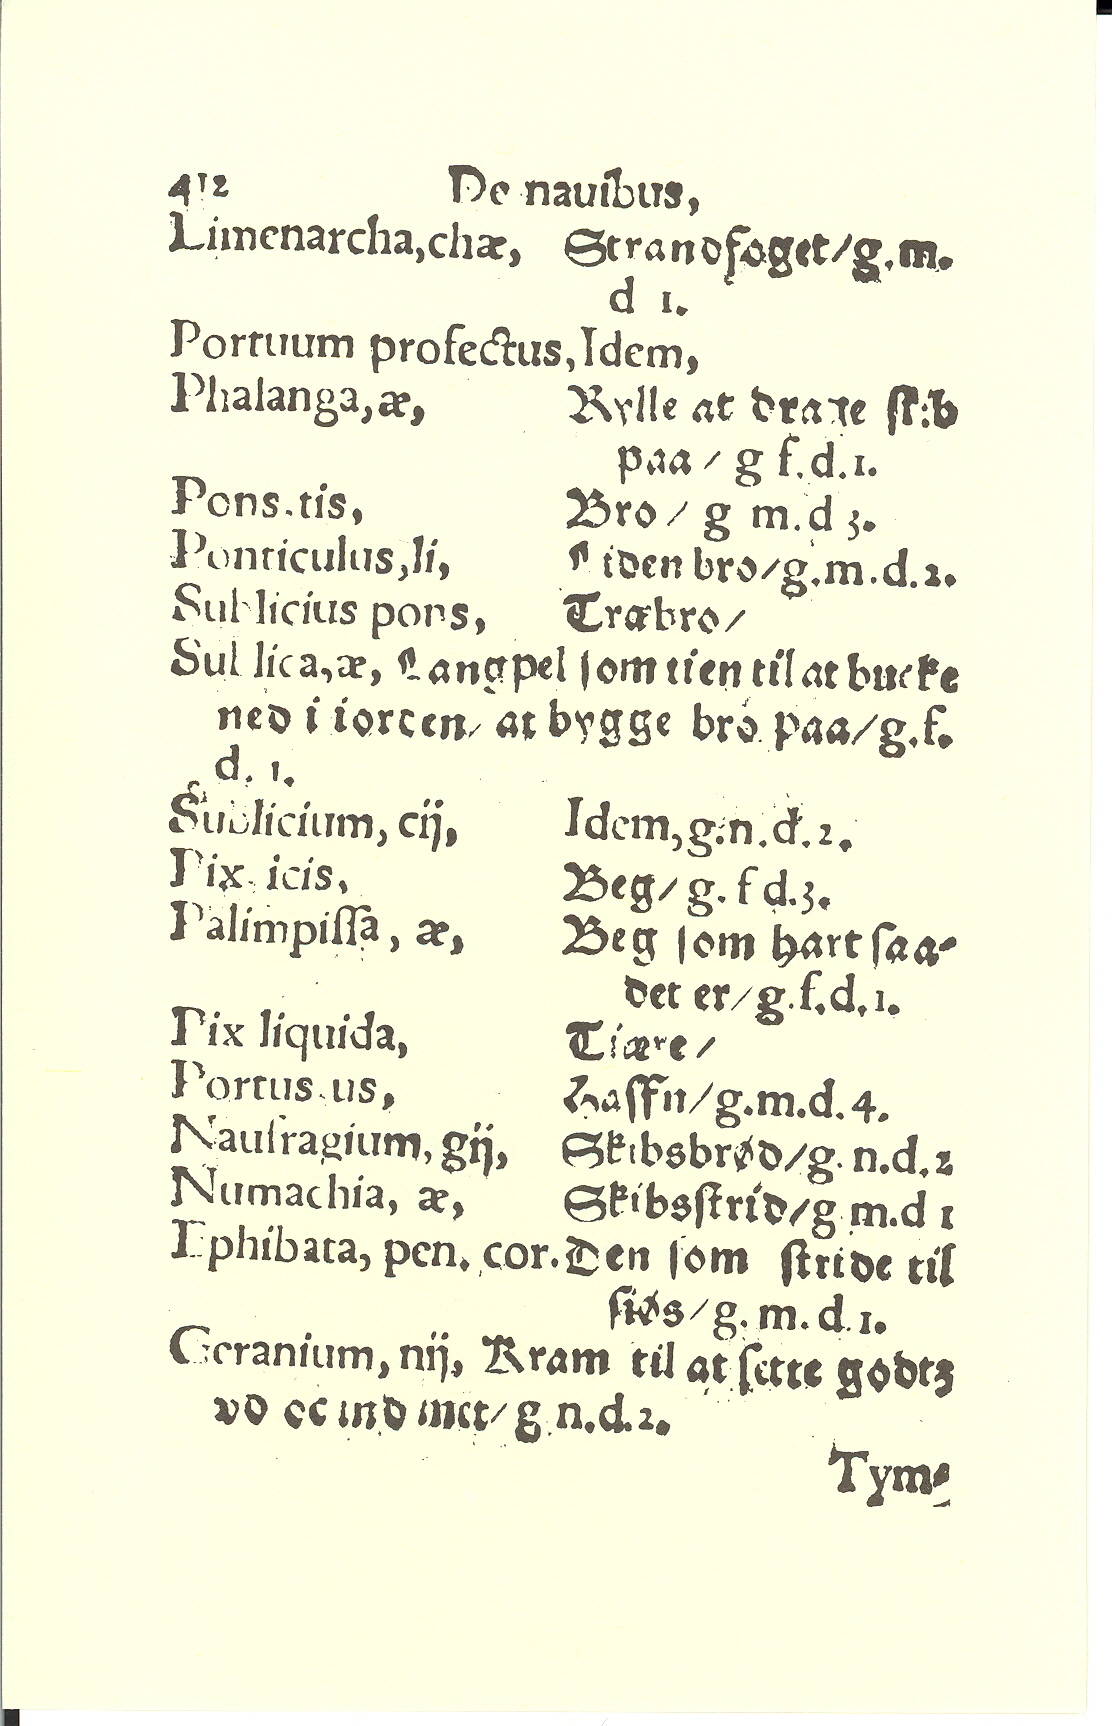 412 De nauibus,
Limenarcha,chæ, Strandfoget/g.m.
d 1.
Portuum profectus,Idem,
Phalanga,æ, Rylle at drage skib
paa / g f.d.1.
Pons.tis, Bro / g m.d 3.
Ponticulus,li, Liden bro/g.m.d.2.
Sublicius pons, Træbro/
Sublica,æ, Langpel som tien til at bucke
ned i iorden/ at bygge bro paa/g.f.
d. 1.
Sublicium, cij, Idem,g.n.d.2.
Pix icis, Beg/ g. f d.3.
Palimpissa, æ, Beg som hart saa-
det er/g.f.d.1.
Pix liquida, Tiære /
Portus.us, Haffn/g.m.d.4.
Naufragium, gij, Skibsbrød/g.n.d.2
Numachia, æ, Skibsstrid/g m.d 1
Ephibata, pen. cor. Den som stride til
siøs/g.m.d.1.
Geranium, nij, Kram til at sette godtz
vd oc ind met/ g n.d.2.
Tym-